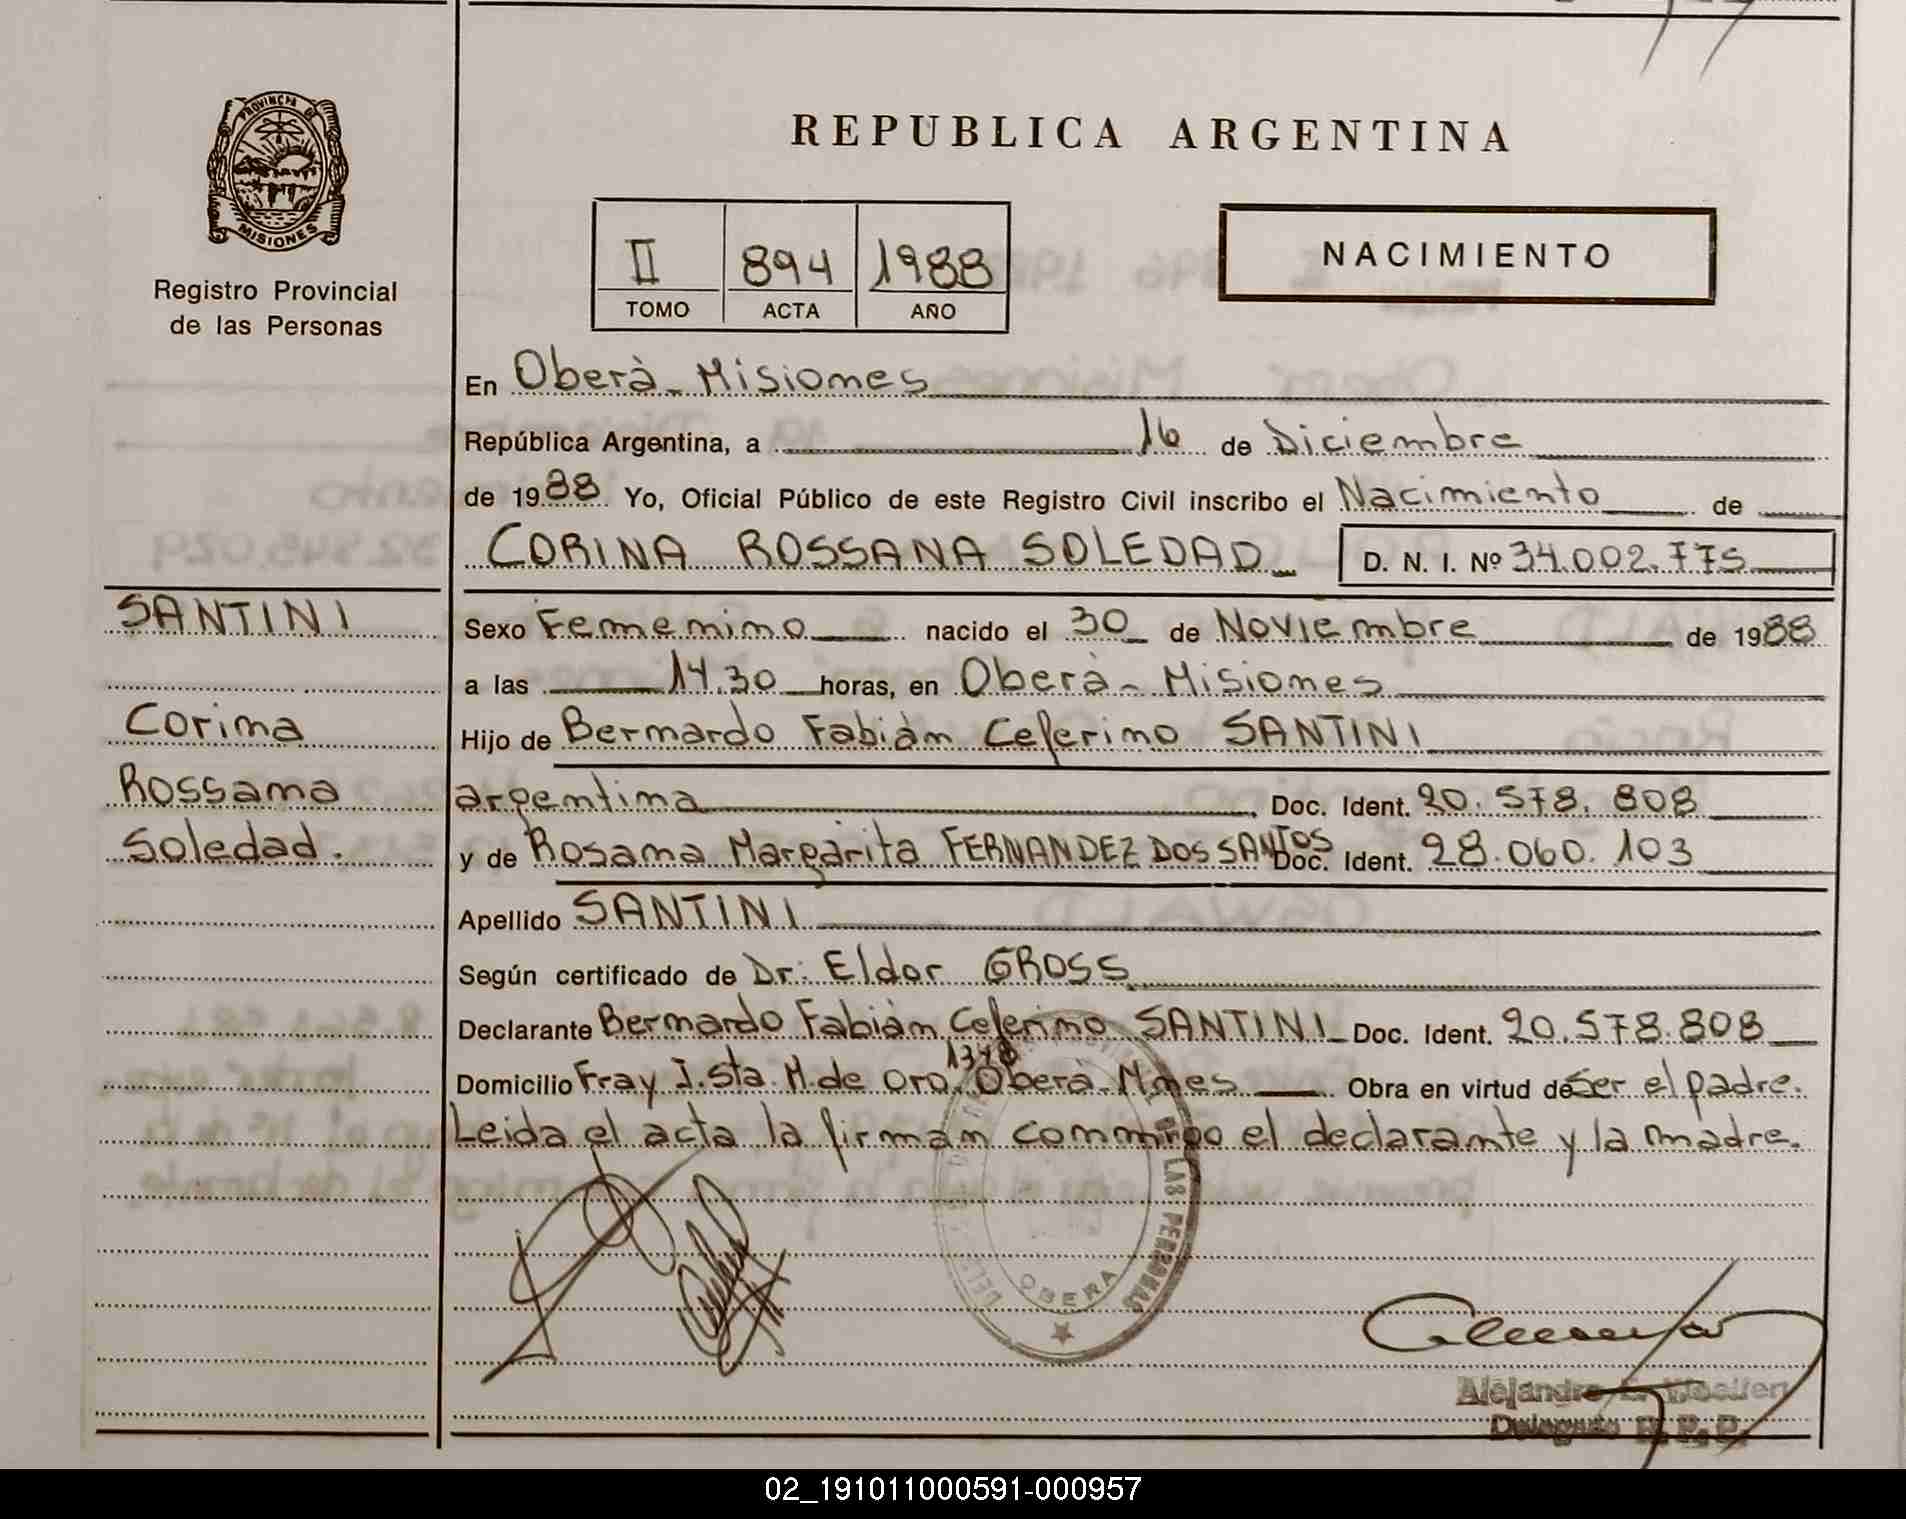 REPUBLICA ARGENTINA
PROVINCIA DE
MISIONES
Registro Provincial
de las Personas
II 894 1988
TOMO ACTA AÑO
NACIMIENTO
En Oberà - Misiones
República Argentina, a 16 de Diciembre
de 1988 Yo, Oficial Público de este Registro Civil inscribo el Nacimiento de
CORINA ROSSANA SOLEDAD D. N. I. Nº 34.002.775
SANTINI
Sexo Femenino nacido el 30 de Noviembre de 1988
a las 14.30 horas, en Oberà - Misiones
Corina
Hijo de Bernardo Fabiàn Ceferino SANTINI
Rossana
argentina Doc. Ident. 20.578.808
Soledad.
y de Rosana Margarita FERNANDEZ DOS SANTOS Doc. Ident. 28.060.103
Apellido SANTINI
Según certificado de Dr. Eldor GROSS
Declarante Bernardo Fabiàn Ceferino SANTINI Doc. Ident. 20.578.808
Domicilio Fray J. sta. M. de Oro. 1348 Oberà - Mnes Obra en virtud de ser el padre.
Leida el acta la firman conmigo el declarante y la madre.
LAS PERSONAS
OBERA
Alejandro
Delegado R. P. P.
02_191011000591-000957